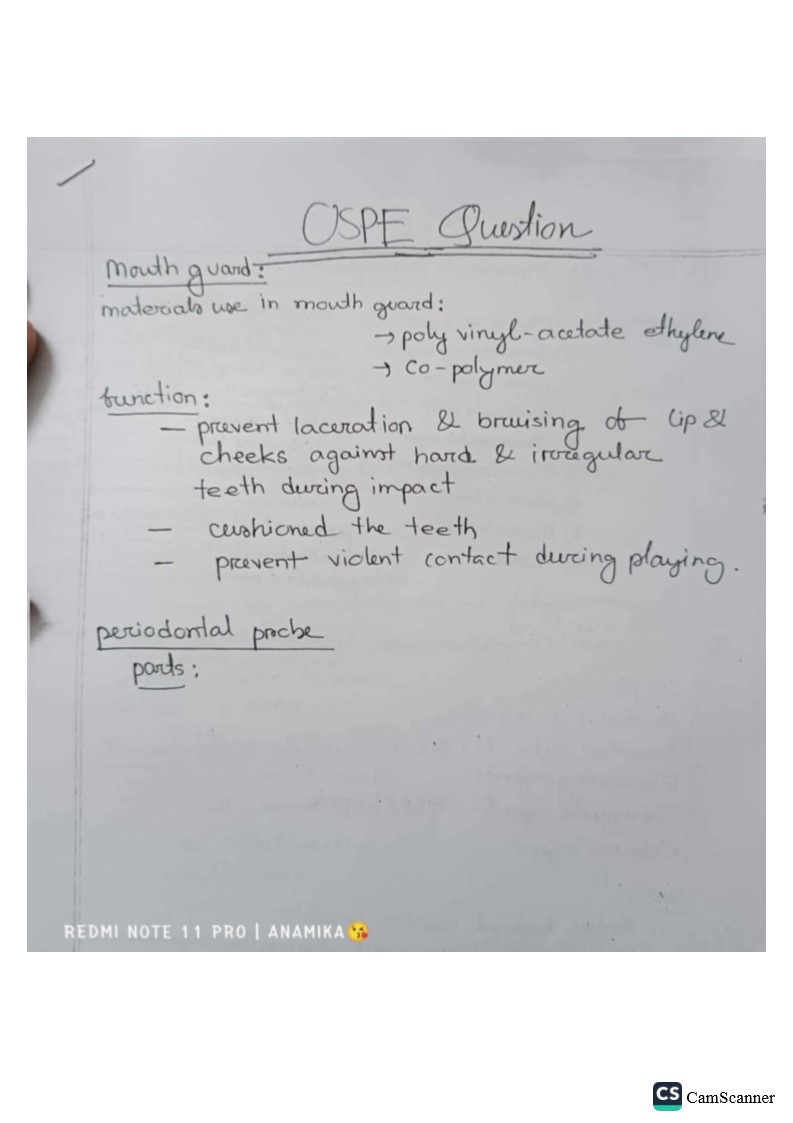 OSPE Question
Mouth guard:
materials use in mouth guard:
→ poly vinyl-acetate ethylene
→ Co-polymer
function:
— prevent laceration & bruising of lip &
cheeks against hard & irregular
teeth during impact
— cushioned the teeth
— prevent violent contact during playing.
periodontal probe
parts:
REDMI NOTE 11 PRO | ANAMIKA😘
CS CamScanner